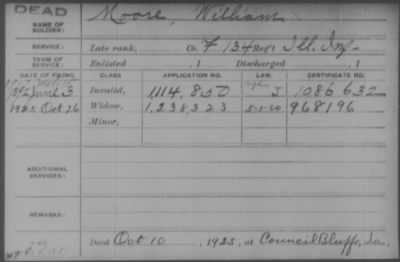 DEAD
NAME OF SOLDIER: Moore, William
SERVICE: Late rank, Co. F 134 Reg't Ill. Inf
TERM OF SERVICE: Enlisted , 1 Discharged , 1
DATE OF FILING. CLASS APPLICATION NO. LAW. CERTIFICATE NO.
1892 June 3 Invalid, 1,114,850 J 1086 632
1925 Oct 26 Widow, 1,238,323 5-1-20 968196
Minor,
ADDITIONAL SERVICES:
REMARKS:
Died Oct 10, 1925, at Council Bluffs, Ia.